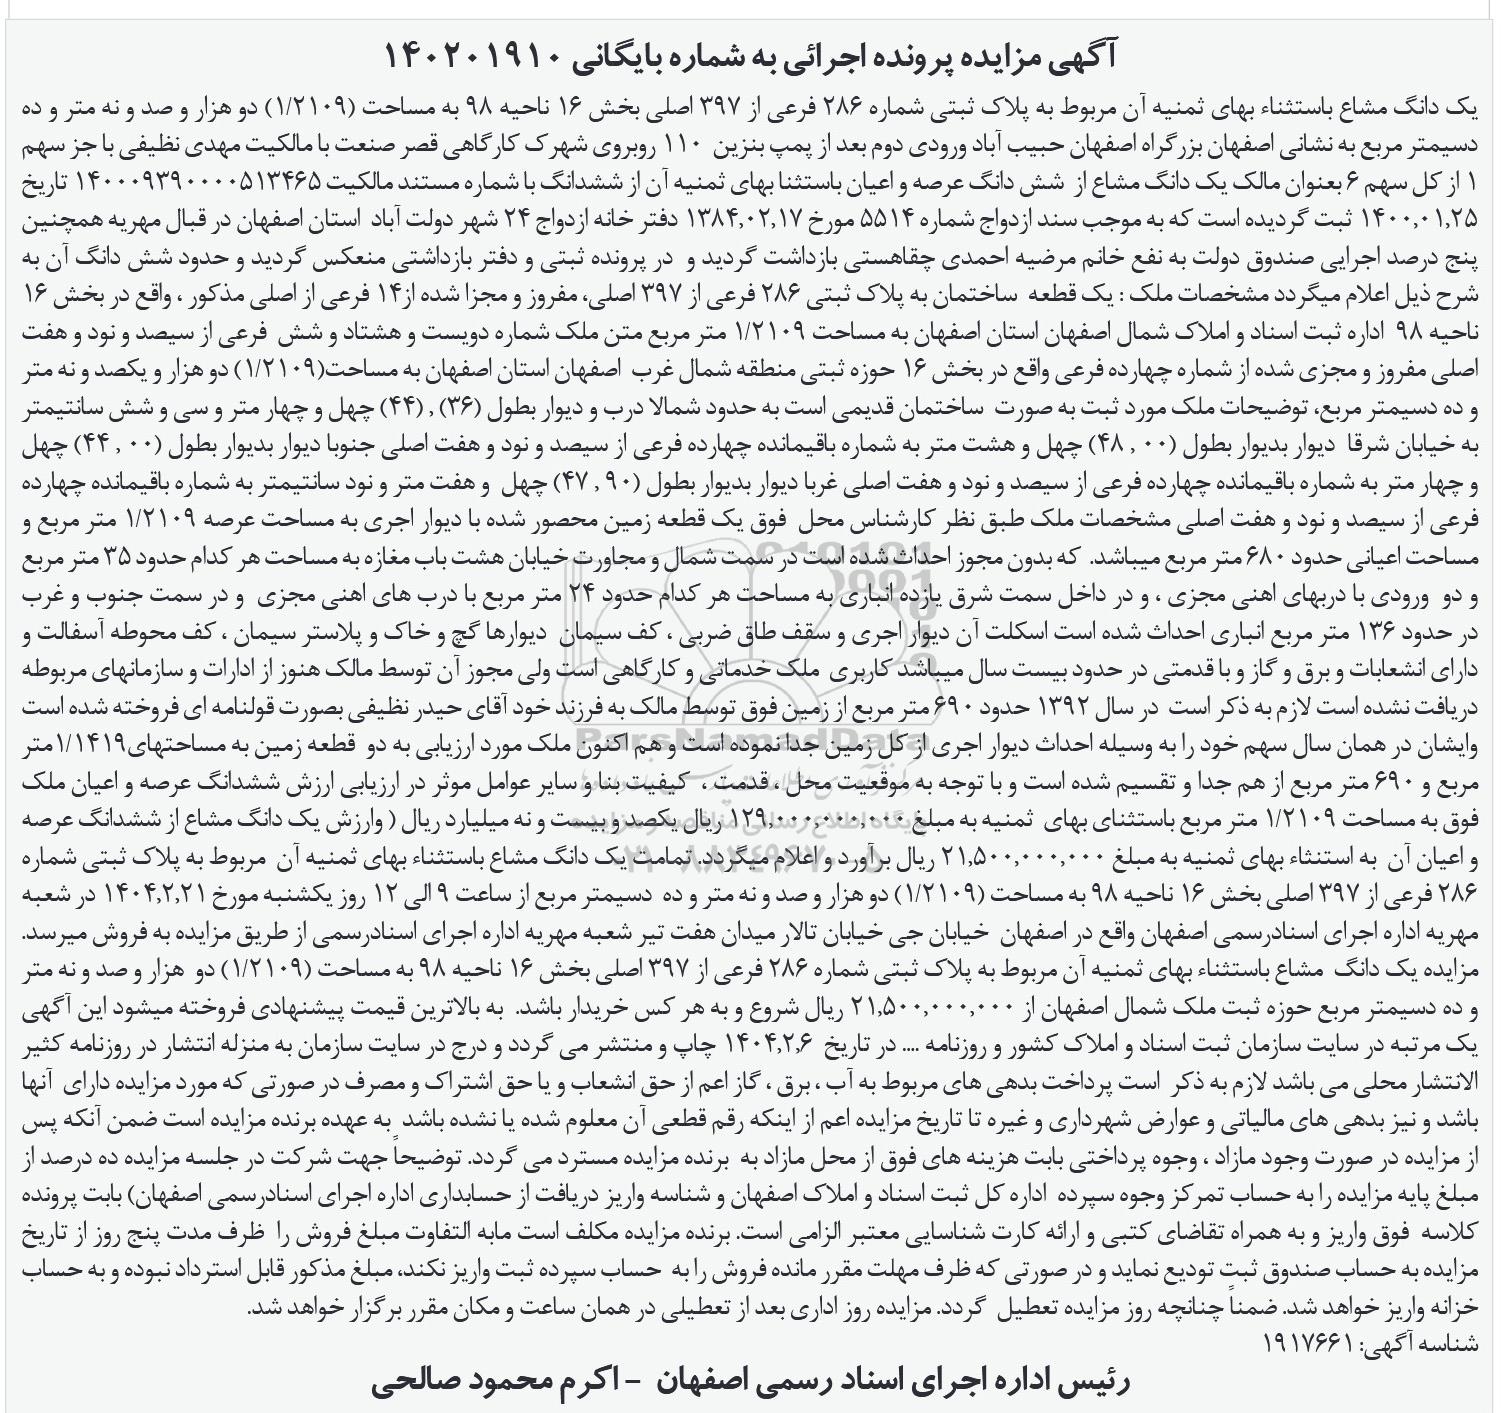 آگهی مزایده پرونده اجرائی به شماره بایگانی ۱۴۰۲۰۱۹۱۰
یک دانگ مشاع باستثناء بهای ثمنیه آن مربوط به پلاک ثبتی شماره ۲۸۶ فرعی از ۳۹۷ اصلی بخش ۱۶ ناحیه ۹۸ به مساحت (۱/۲۱۰۹) دو هزار و صد و نه متر و ده
دسیمتر مربع به نشانی اصفهان بزرگراه اصفهان حبیب آباد ورودی دوم بعد از پمپ بنزین ۱۱۰ روبروی شهرک کارگاهی قصر صنعت با مالکیت مهدی نظیفی با جز سهم
۱ از کل سهم ۶ بعنوان مالک یک دانگ مشاع از شش دانگ عرصه و اعیان باستثنا بهای ثمنیه آن از ششدانگ با شماره مستند مالکیت ۱۴۰۰۰۹۳۹۰۰۰۰۵۱۳۴۶۵ تاریخ
۱۴۰۰,۰۱,۲۵ ثبت گردیده است که به موجب سند ازدواج شماره ۵۵۱۴ مورخ ۱۳۸۴,۰۲,۱۷ دفتر خانه ازدواج ۲۴ شهر دولت آباد استان اصفهان در قبال مهریه همچنین
پنج درصد اجرایی صندوق دولت به نفع خانم مرضیه احمدی چقاهستی بازداشت گردید و در پرونده ثبتی و دفتر بازداشتی منعکس گردید و حدود شش دانگ آن به
شرح ذیل اعلام میگردد مشخصات ملک : یک قطعه ساختمان به پلاک ثبتی ۲۸۶ فرعی از ۳۹۷ اصلی، مفروز و مجزا شده از۱۴ فرعی از اصلی مذکور ، واقع در بخش ۱۶
ناحیه ۹۸ اداره ثبت اسناد و املاک شمال اصفهان استان اصفهان به مساحت ۱/۲۱۰۹ متر مربع متن ملک شماره دویست و هشتاد و شش فرعی از سیصد و نود و هفت
اصلی مفروز و مجزی شده از شماره چهارده فرعی واقع در بخش ۱۶ حوزه ثبتی منطقه شمال غرب اصفهان استان اصفهان به مساحت(۱/۲۱۰۹) دو هزار و یکصد و نه متر
و ده دسیمتر مربع، توضیحات ملک مورد ثبت به صورت ساختمان قدیمی است به حدود شمالا درب و دیوار بطول (۳۶) , (۴۴) چهل و چهار متر و سی و شش سانتیمتر
به خیابان شرقا دیوار بدیوار بطول (۰۰ , ۴۸) چهل و هشت متر به شماره باقیمانده چهارده فرعی از سیصد و نود و هفت اصلی جنوبا دیوار بدیوار بطول (۰۰ , ۴۴) چهل
و چهار متر به شماره باقیمانده چهارده فرعی از سیصد و نود و هفت اصلی غربا دیوار بدیوار بطول (۹۰ , ۴۷) چهل و هفت متر و نود سانتیمتر به شماره باقیمانده چهارده
فرعی از سیصد و نود و هفت اصلی مشخصات ملک طبق نظر کارشناس محل فوق یک قطعه زمین محصور شده با دیوار اجری به مساحت عرصه ۱/۲۱۰۹ متر مربع و
مساحت اعیانی حدود ۶۸۰ متر مربع میباشد. که بدون مجوز احداث شده است در سمت شمال و مجاورت خیابان هشت باب مغازه به مساحت هر کدام حدود ۳۵ متر مربع
و دو ورودی با دربهای اهنی مجزی ، و در داخل سمت شرق یازده انباری به مساحت هر کدام حدود ۲۴ متر مربع با درب های اهنی مجزی و در سمت جنوب و غرب
در حدود ۱۳۶ متر مربع انباری احداث شده است اسکلت آن دیوار اجری و سقف طاق ضربی ، کف سیمان دیوارها گچ و خاک و پلاستر سیمان ، کف محوطه آسفالت و
دارای انشعابات و برق و گاز و با قدمتی در حدود بیست سال میباشد کاربری ملک خدماتی و کارگاهی است ولی مجوز آن توسط مالک هنوز از ادارات و سازمانهای مربوطه
دریافت نشده است لازم به ذکر است در سال ۱۳۹۲ حدود ۶۹۰ متر مربع از زمین فوق توسط مالک به فرزند خود آقای حیدر نظیفی بصورت قولنامه ای فروخته شده است
وایشان در همان سال سهم خود را به وسیله احداث دیوار اجری از کل زمین جدا نموده است و هم اکنون ملک مورد ارزیابی به دو قطعه زمین به مساحتهای۱/۱۴۱۹متر
مربع و ۶۹۰ متر مربع از هم جدا و تقسیم شده است و با توجه به موقعیت محل ، قدمت ، کیفیت بنا و سایر عوامل موثر در ارزیابی ارزش ششدانگ عرصه و اعیان ملک
فوق به مساحت ۱/۲۱۰۹ متر مربع باستثنای بهای ثمنیه به مبلغ ۱۲۹,۰۰۰,۰۰۰,۰۰۰ ریال یکصد و بیست و نه میلیارد ریال ( وارزش یک دانگ مشاع از ششدانگ عرصه
و اعیان آن به استنثاء بهای ثمنیه به مبلغ ۲۱,۵۰۰,۰۰۰,۰۰۰ ریال برآورد و اعلام میگردد. تمامت یک دانگ مشاع باستثناء بهای ثمنیه آن مربوط به پلاک ثبتی شماره
۲۸۶ فرعی از ۳۹۷ اصلی بخش ۱۶ ناحیه ۹۸ به مساحت (۱/۲۱۰۹) دو هزار و صد و نه متر و ده دسیمتر مربع از ساعت ۹ الی ۱۲ روز یکشنبه مورخ ۱۴۰۴,۲,۲۱ در شعبه
مهریه اداره اجرای اسنادرسمی اصفهان واقع در اصفهان خیابان جی خیابان تالار میدان هفت تیر شعبه مهریه اداره اجرای اسنادرسمی از طریق مزایده به فروش میرسد.
مزایده یک دانگ مشاع باستثناء بهای ثمنیه آن مربوط به پلاک ثبتی شماره ۲۸۶ فرعی از ۳۹۷ اصلی بخش ۱۶ ناحیه ۹۸ به مساحت (۱/۲۱۰۹) دو هزار و صد و نه متر
و ده دسیمتر مربع حوزه ثبت ملک شمال اصفهان از ۲۱,۵۰۰,۰۰۰,۰۰۰ ریال شروع و به هر کس خریدار باشد. به بالاترین قیمت پیشنهادی فروخته میشود این آگهی
یک مرتبه در سایت سازمان ثبت اسناد و املاک کشور و روزنامه .... در تاریخ ۱۴۰۴,۲,۶ چاپ و منتشر می گردد و درج در سایت سازمان به منزله انتشار در روزنامه کثیر
الانتشار محلی می باشد لازم به ذکر است پرداخت بدهی های مربوط به آب ، برق ، گاز اعم از حق انشعاب و یا حق اشتراک و مصرف در صورتی که مورد مزایده دارای آنها
باشد و نیز بدهی های مالیاتی و عوارض شهرداری و غیره تا تاریخ مزایده اعم از اینکه رقم قطعی آن معلوم شده یا نشده باشد به عهده برنده مزایده است ضمن آنکه پس
از مزایده در صورت وجود مازاد ، وجوه پرداختی بابت هزینه های فوق از محل مازاد به برنده مزایده مسترد می گردد. توضیحاً جهت شرکت در جلسه مزایده ده درصد از
مبلغ پایه مزایده را به حساب تمرکز وجوه سپرده اداره کل ثبت اسناد و املاک اصفهان و شناسه واریز دریافت از حسابداری اداره اجرای اسنادرسمی اصفهان) بابت پرونده
کلاسه فوق واریز و به همراه تقاضای کتبی و ارائه کارت شناسایی معتبر الزامی است. برنده مزایده مکلف است مابه التفاوت مبلغ فروش را ظرف مدت پنج روز از تاریخ
مزایده به حساب صندوق ثبت تودیع نماید و در صورتی که ظرف مهلت مقرر مانده فروش را به حساب سپرده ثبت واریز نکند، مبلغ مذکور قابل استرداد نبوده و به حساب
خزانه واریز خواهد شد. ضمناً چنانچه روز مزایده تعطیل گردد. مزایده روز اداری بعد از تعطیلی در همان ساعت و مکان مقرر برگزار خواهد شد.
شناسه آگهی: ۱۹۱۷۶۶۱
رئیس اداره اجرای اسناد رسمی اصفهان – اکرم محمود صالحی
ParsNamadData